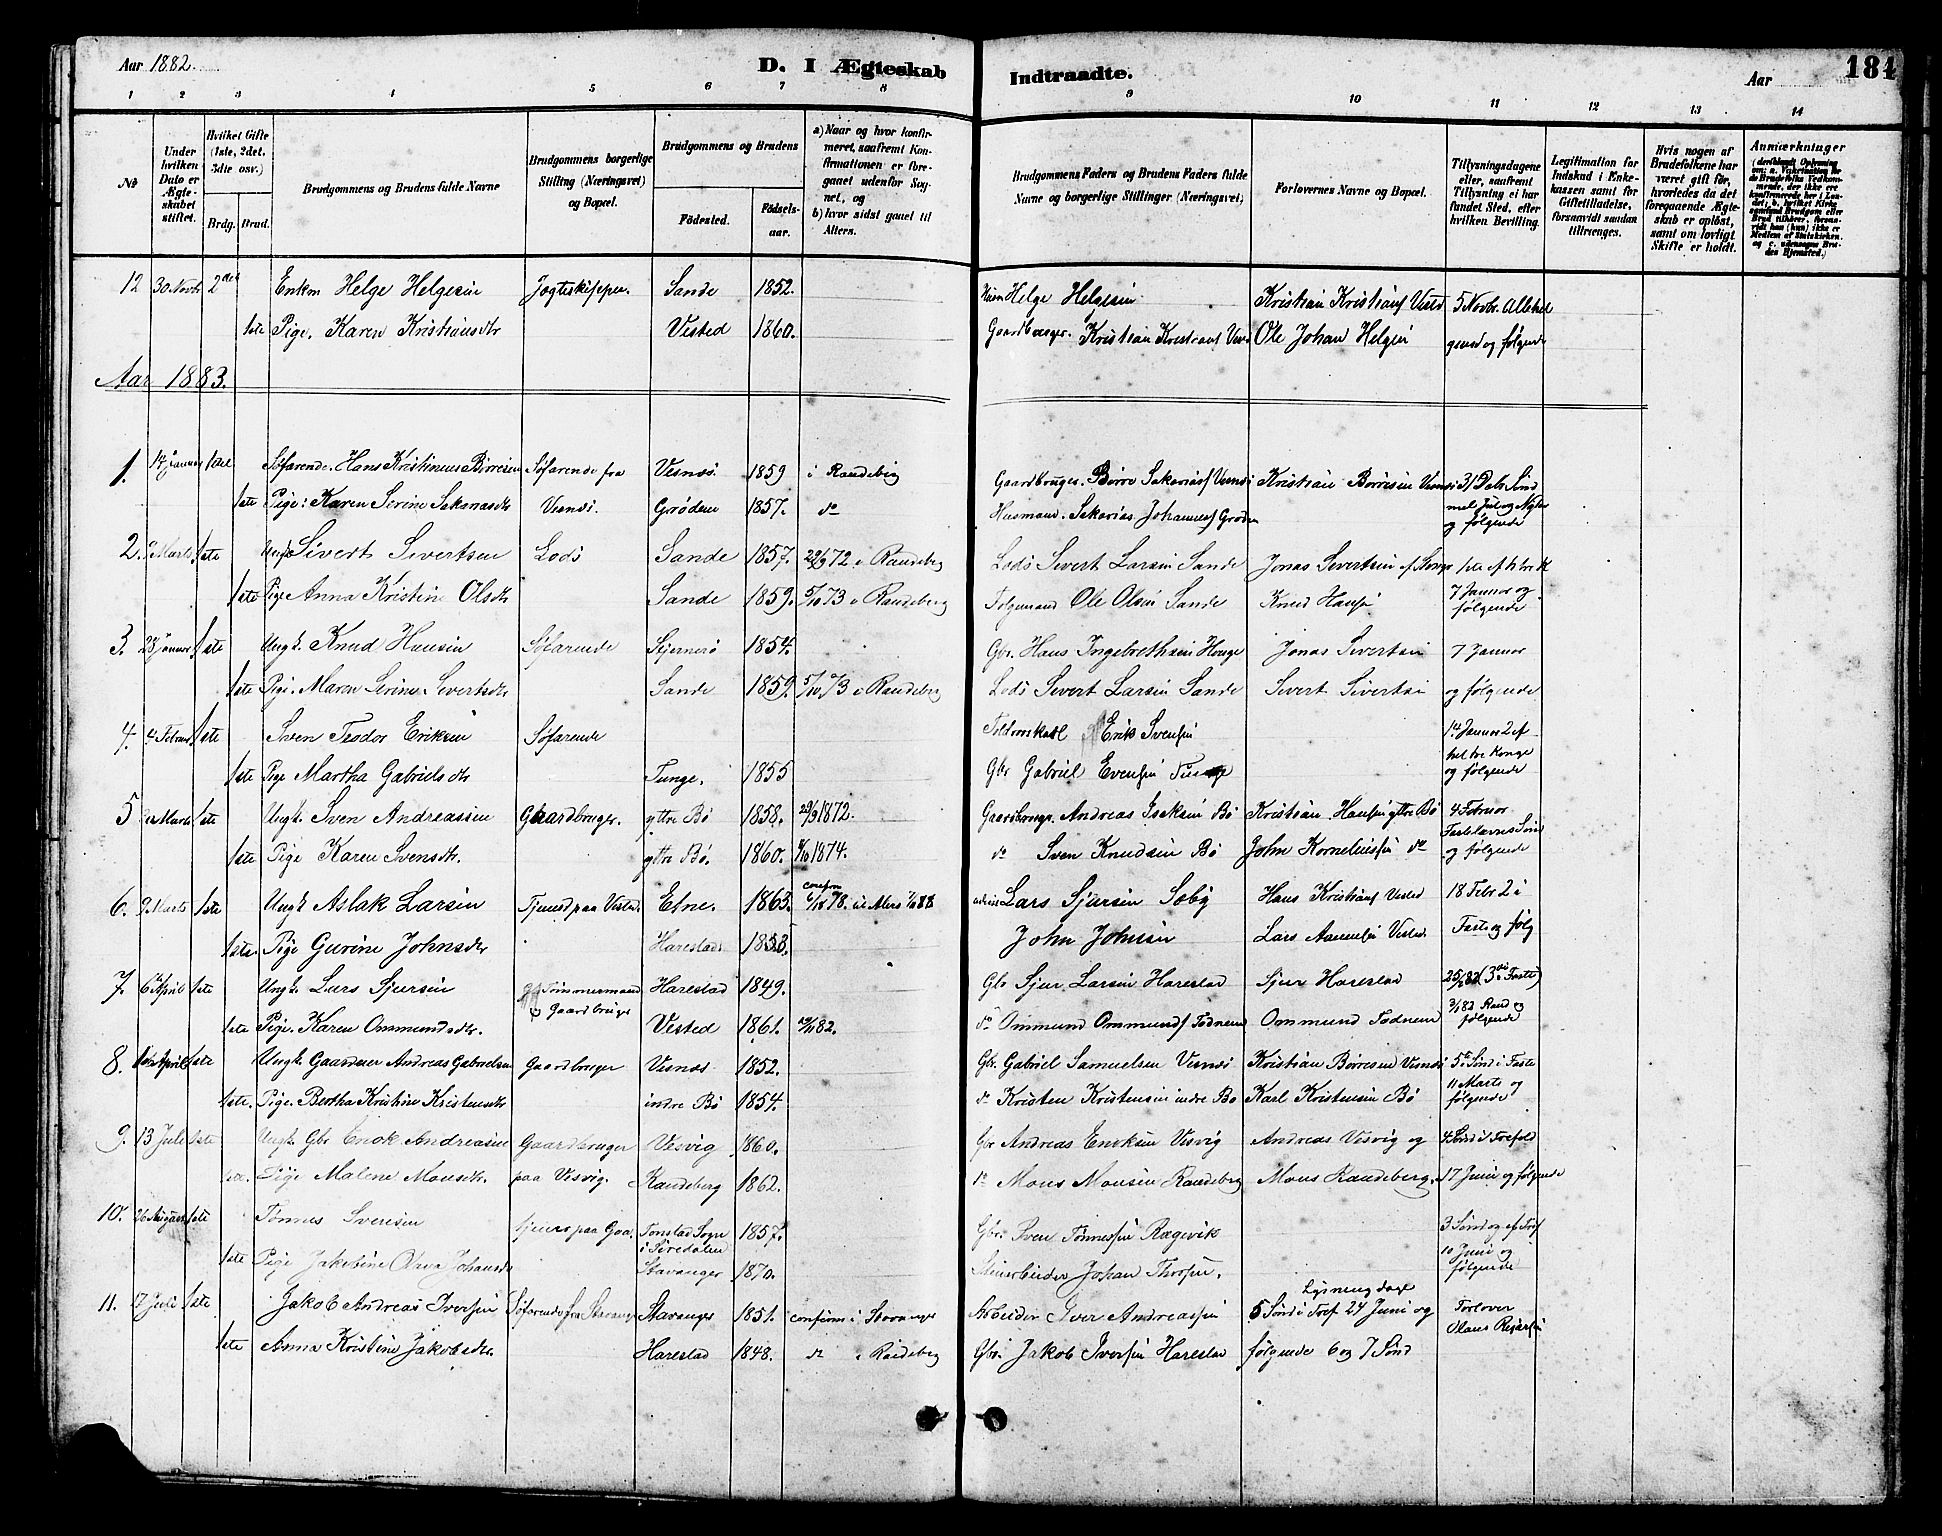 Aar 1882.
D. I Ægteskab Indtraadte.
Aar
184
1 2 3 4 5 6 7 8 9 10 11 12 13 14
No
Under hvilken Dato er Ægteskabet stiftet.
Hvilket Gifte (1ste, 2det, 3die osv.)
Brdg. Brud.
Brudgommens og Brudens fulde Navne
Brudgommens borgerlige Stilling (Næringsvei) og Bopæl.
Brudgommens og Brudens
Fødested. Fødselsaar.
a) Naar og hvor konfirmeret, saafremt Konfirmationen er foregaaet udenfor Sognet, og
b) hvor sidst gaaet til Alters.
Brudgommens Faders og Brudens Faders fulde Navne og borgerlige Stillinger (Næringsvei)
Forlovernes Navne og Bopæl.
Tillysningsdagene eller, saafremt Tillysning ei har fundet Sted, efter hvilken Bevilling.
Legitimation for Indskud i Enkekassen samt for Giftetilladelse, forsaavidt saadan tiltrænges.
Hvis nogen af Brudefolkene har været gift før, hvorledes da det foregaaende Ægteskab er opløst, samt om lovligt Skifte er holdt.
Anmærkninger
12 30 Novbr 2det Enkm Helge Helgesen Jagteskipper. Sande 1852. Helge Helgesen Kristian Kristians Vested 5 Novbr. Allehel
1ste Pige. Karen Kristiansdtr Vested 1860. Gaardbruger. Kristian Ole Johan Helges gensd og følgende
Aar 1883.
1. 14 Januar 1ste Søfarende. Hans Kristinius Børresen Søfarende fra Vesnæs. 1859 i Randeberg Gaardbruger. Børre Sakarias Kristian Børresen 31 Debr Sønd
1ste Pige: Karen Serine Sakariasdtr Grødem 1857. do Husmand. Sakarias Johannes Grødem mel Jul og Nytar og følgende
2. Marts 1ste Ungk Sivert Sivertsen Lods Sande 1857. 29/9 72 i Randeberg Lods Sivert Larsen Sande Jonas Sivertsen
1ste Pige Anna Kristine Olsdtr Sande 1859. 5/10 73 i Randeberg Ole Olsen Sande Knud Hans 7 Januar og følgende
3. 28 Januar 1ste Ungk. Knud Hansen Søfarende Stjernerø 1854. Gbr. Hans Ingebrethsen Hauge Jonas Sivertsen 7 Januar
1ste Pige. Maren Serine Sivertsdtr Sande 1859. 5/10 73 i Randeberg Lods Sivert Larsen Sande Sivert Sivertsen og følgende
4. Februar 1ste Sven Teodor Eriksen Søfarende Erik Svensen 14 Januar 2 ef
1ste Pige Martha Gabrielsdtr Tunge. 1855 Gbr Gabriel Evensen Tunge hel tre Konge og følgende
5 Marts 1ste Ungk. Sven Andreassen Gaardbruger. yttre Bø 1858. 29/9 1872. Gaardbruger Andreas Isaksen Bø Kristian Hansen yttre Bø 4 Februar
1ste Pige Karen Svensdtr. yttre Bø. 1860. 1874. do Sven Knudsen Bø John Korneliussen do Fastelavns Sønd og følgende
6. 9 Marts 1ste Ungk Aslak Larsen Tjened paa Vested. Etne. 1863. confm 78. Lars Sjursen Sæby Hans Kristians Vested 18 Febr 2 i
1ste. Pige Gurine Johnsdtr Harestad. 1853. John Johnsen Lars Vested. Faste og følg
7. 6 April 1ste Ungk. Lars Sjursen Tømmermand Gaardbruger Harestad 1849. Gbr Sjur Larsen Harestad Sjur Harestad 3die Faste
1ste Pige. Karen Ommundsdtr. Vested 1861. 82. do Ommund Ommunds Todnem Ommund Todnem følgende
8. April 1ste Ungk. Andreas Gabrielsen Gaardbruger Vesnæs. 1852. Gbr. Gabriel Samuelsen Vesnæs Kristian Børresen Vesnæs 5te Sønd i Faste
1ste. Pige. Bertha Kristine Kristensdtr indre Bø 1854. do Kristen Kristensen indre Bø Karl Kristensen Bø 11 Marts og følgende
9. 13 Juli 1ste Ungk. Gbr Enok Andreasen Gaardbruger Visvig 1860. Gbr Andreas Enoksen Visvig Andreas Visvig og 4 Sønd i Trefold
Pige Malene Monsdtr. paa Visvig. Randeberg 1862. do Mons Monsen Randeberg Mons Randeberg. 17 Juni og følgende
10. 26 August 1ste Tønnes Svensen tjener paa Tonstad Sogn i Siredalen 1857. Gbr. Sven Tønnessen Rægevik 3 Sønd og ef Tref
1ste Pige Jakobine Johansdtr Stavanger 1870. Johan 10 Juni og følgende
11. 17 Juli 1ste Jakob Andreas Iversen Søfarende fra Stavanger Stavanger 1851. confirm i Stavanger Arbeider Iver Andreassen Lysningsdage 5 Sønd i Tref 24 Juni og Forlover
1ste Anna Kristine Jakobsdtr. Harestad 1848. do i Randeberg Gbr. Jakob Iversen Harestad følgende 6 og 7 Sønd Olaus